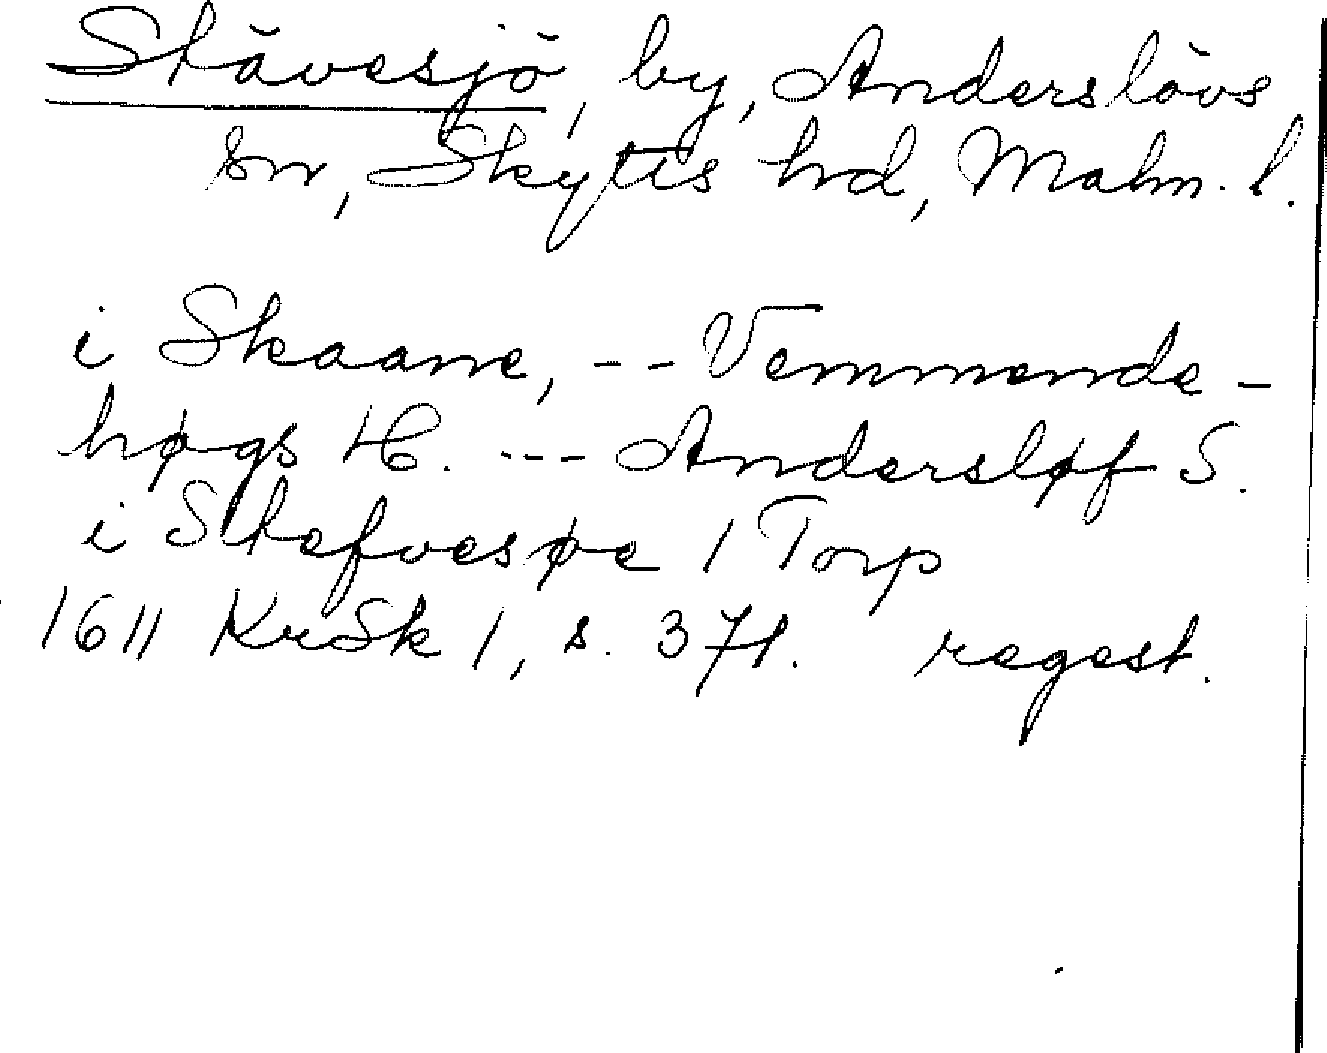 Stävesjö, by, Anderslövs
sn, Skytts hd, Malm. l.
i Skaane, -- Vemmende-
høgs H. --- Andersløf S.
i Stefvesøe 1 Torp
1611 KrSk 1, s. 371. regest.